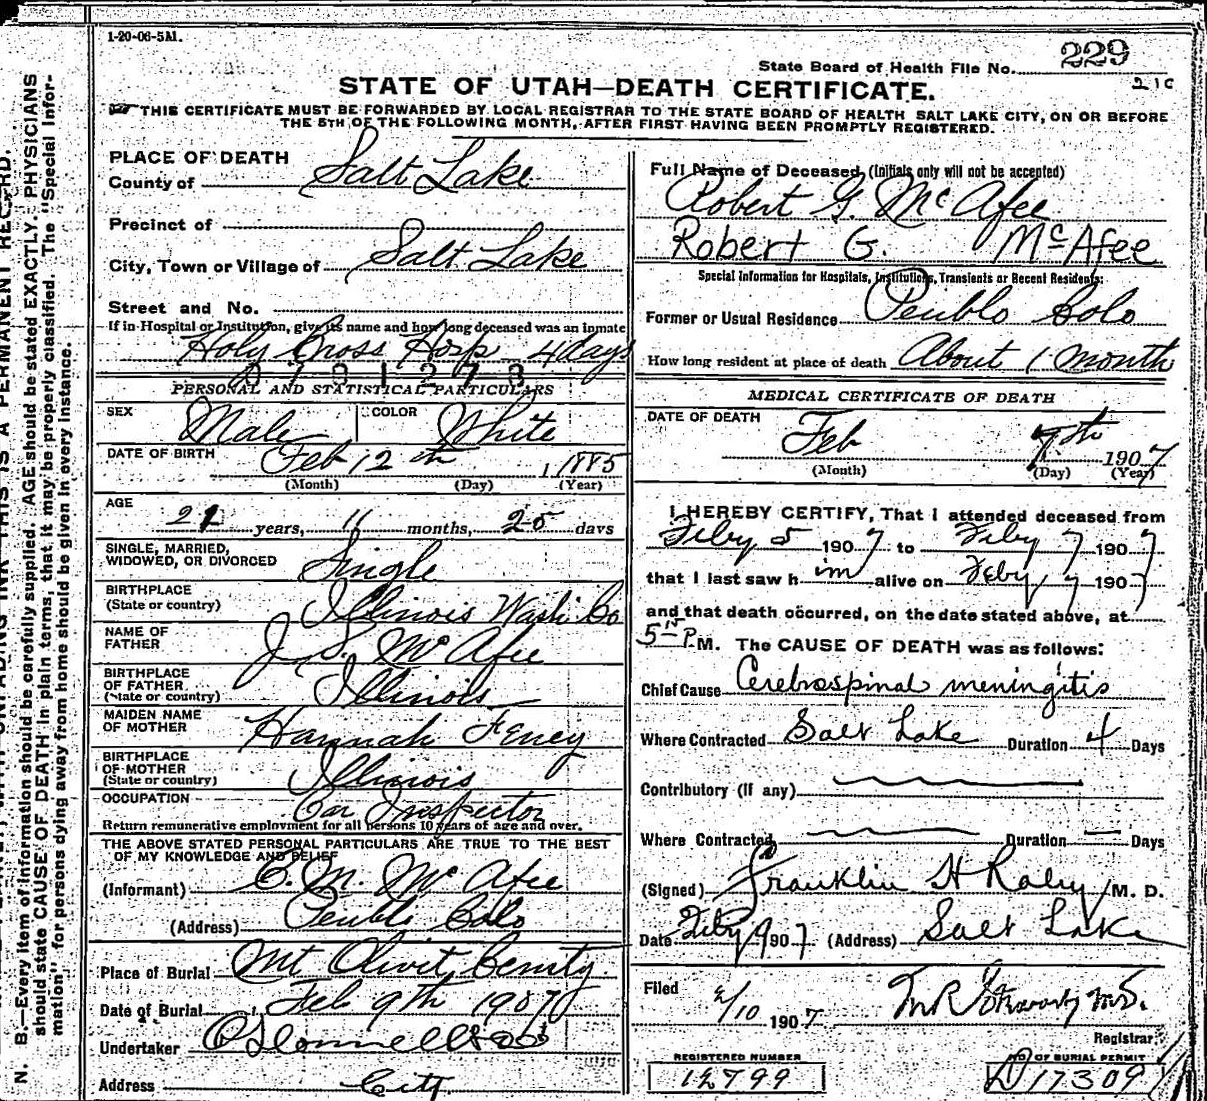 1-20-06-5M.
State Board of Health File No. 229
210
STATE OF UTAH—DEATH CERTIFICATE.
THIS CERTIFICATE MUST BE FORWARDED BY LOCAL REGISTRAR TO THE STATE BOARD OF HEALTH SALT LAKE CITY, ON OR BEFORE
THE 5TH OF THE FOLLOWING MONTH, AFTER FIRST HAVING BEEN PROMPTLY REGISTERED.
PLACE OF DEATH
County of Salt Lake
Precinct of
City, Town or Village of Salt Lake
Street and No.
If in Hospital or Institution, give its name and how long deceased was an inmate
Holy Cross Hosp 4 days
PERSONAL AND STATISTICAL PARTICULARS
SEX Male COLOR White
DATE OF BIRTH Feb 12th 1 1885
(Month) (Day) (Year)
AGE
21 years, 11 months, 25 days
SINGLE, MARRIED,
WIDOWED, OR DIVORCED Single
BIRTHPLACE
(State or country) Illinois Wash. Co
NAME OF
FATHER J. S. McAfee
BIRTHPLACE
OF FATHER
(State or country) Illinois
MAIDEN NAME
OF MOTHER Hannah Feney
BIRTHPLACE
OF MOTHER
(State or country) Illinois
OCCUPATION Car Inspector
Return remunerative employment for all persons 10 years of age and over.
THE ABOVE STATED PERSONAL PARTICULARS ARE TRUE TO THE BEST
OF MY KNOWLEDGE AND BELIEF
(Informant) C. M. McAfee
(Address) Peublo Colo
Place of Burial Mt Olivit Cemity
Date of Burial Feb 9th 1907
Undertaker O'Donnell & Co
Address City
Full Name of Deceased (Initials only will not be accepted)
Robert G. McAfee
Robert G. McAfee
Special Information for Hospitals, Institutions, Transients or Recent Residents:
Former or Usual Residence Peublo Colo
How long resident at place of death About 1 month
MEDICAL CERTIFICATE OF DEATH
DATE OF DEATH
Feb 7th 1907
(Month) (Day) (Year)
I HEREBY CERTIFY, That I attended deceased from
Feby 5 1907 to Feby 7 1907
that I last saw him alive on Feby 7 1907
and that death occurred, on the date stated above, at
P.M. The CAUSE OF DEATH was as follows:
Chief Cause Cerebrospinal meningitis
Where Contracted Salt Lake Duration 4 Days
Contributory (If any)
Where Contracted Duration — Days
(Signed) Franklin H Raley M. D.
Date Feby 9 1907 (Address) Salt Lake
Filed 2/10 1907
Registrar
REGISTERED NUMBER
12799
NO. OF BURIAL PERMIT
D 17309
N. B.—Every item of information should be carefully supplied. AGE should be stated EXACTLY. PHYSICIANS
should state CAUSE OF DEATH in plain terms, that it may be properly classified. The "Special Infor-
mation" for persons dying away from home should be given in every instance.